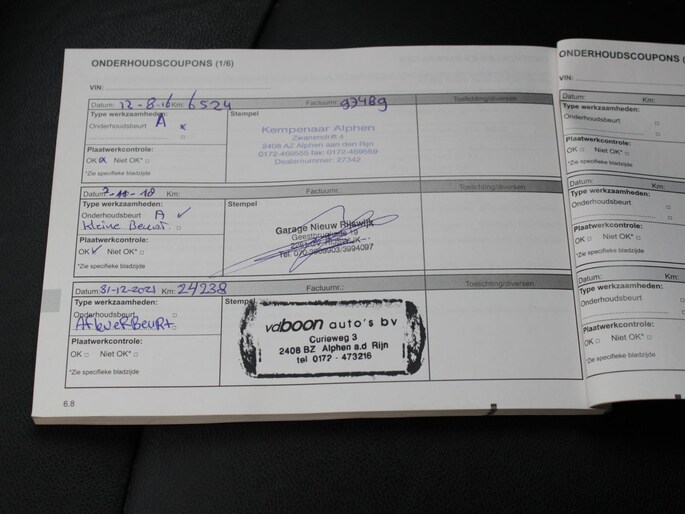 ONDERHOUDSCOUPONS (1/6)
VIN:
Datum: 12-8-16 Km: 6524 Factuurnr: 97489 Toelichting/diversen
Type werkzaamheden: Stempel
Onderhoudsbeurt A x
Kempenaar Alphen
Zwanendrift 4
2408 AZ Alphen aan den Rijn
0172-469555 fax: 0172-469559
Dealernummer: 27342
Plaatwerkcontrole:
OK x Niet OK*
*Zie specifieke bladzijde
Datum: 7-11-18 Km: Factuurnr.: Toelichting/diversen
Type werkzaamheden: Stempel
Onderhoudsbeurt A
kleine Beurt
Garage Nieuw Rijswijk
Plaatwerkcontrole:
OK Niet OK*
*Zie specifieke bladzijde
Datum: 31-12-2021 Km: 24238 Factuurnr.: Toelichting/diversen
Type werkzaamheden: Stempel
Onderhoudsbeurt
AfleverBeurt
vdboon auto's bv
Curieweg 3
2408 BZ Alphen a.d Rijn
tel 0172 - 473216
Plaatwerkcontrole:
OK Niet OK*
*Zie specifieke bladzijde
6.8
ONDERHOUDSCOUPONS (
VIN:
Datum: Km:
Type werkzaamheden:
Onderhoudsbeurt
Plaatwerkcontrole:
OK Niet OK*
*Zie specifieke bladzijde
Datum: Km:
Type werkzaamheden:
Onderhoudsbeurt
Plaatwerkcontrole:
OK Niet OK*
*Zie specifieke bladzijde
Datum: Km:
Type werkzaamheden:
Onderhoudsbeurt
Plaatwerkcontrole:
OK Niet OK*
*Zie specifieke bladzijde